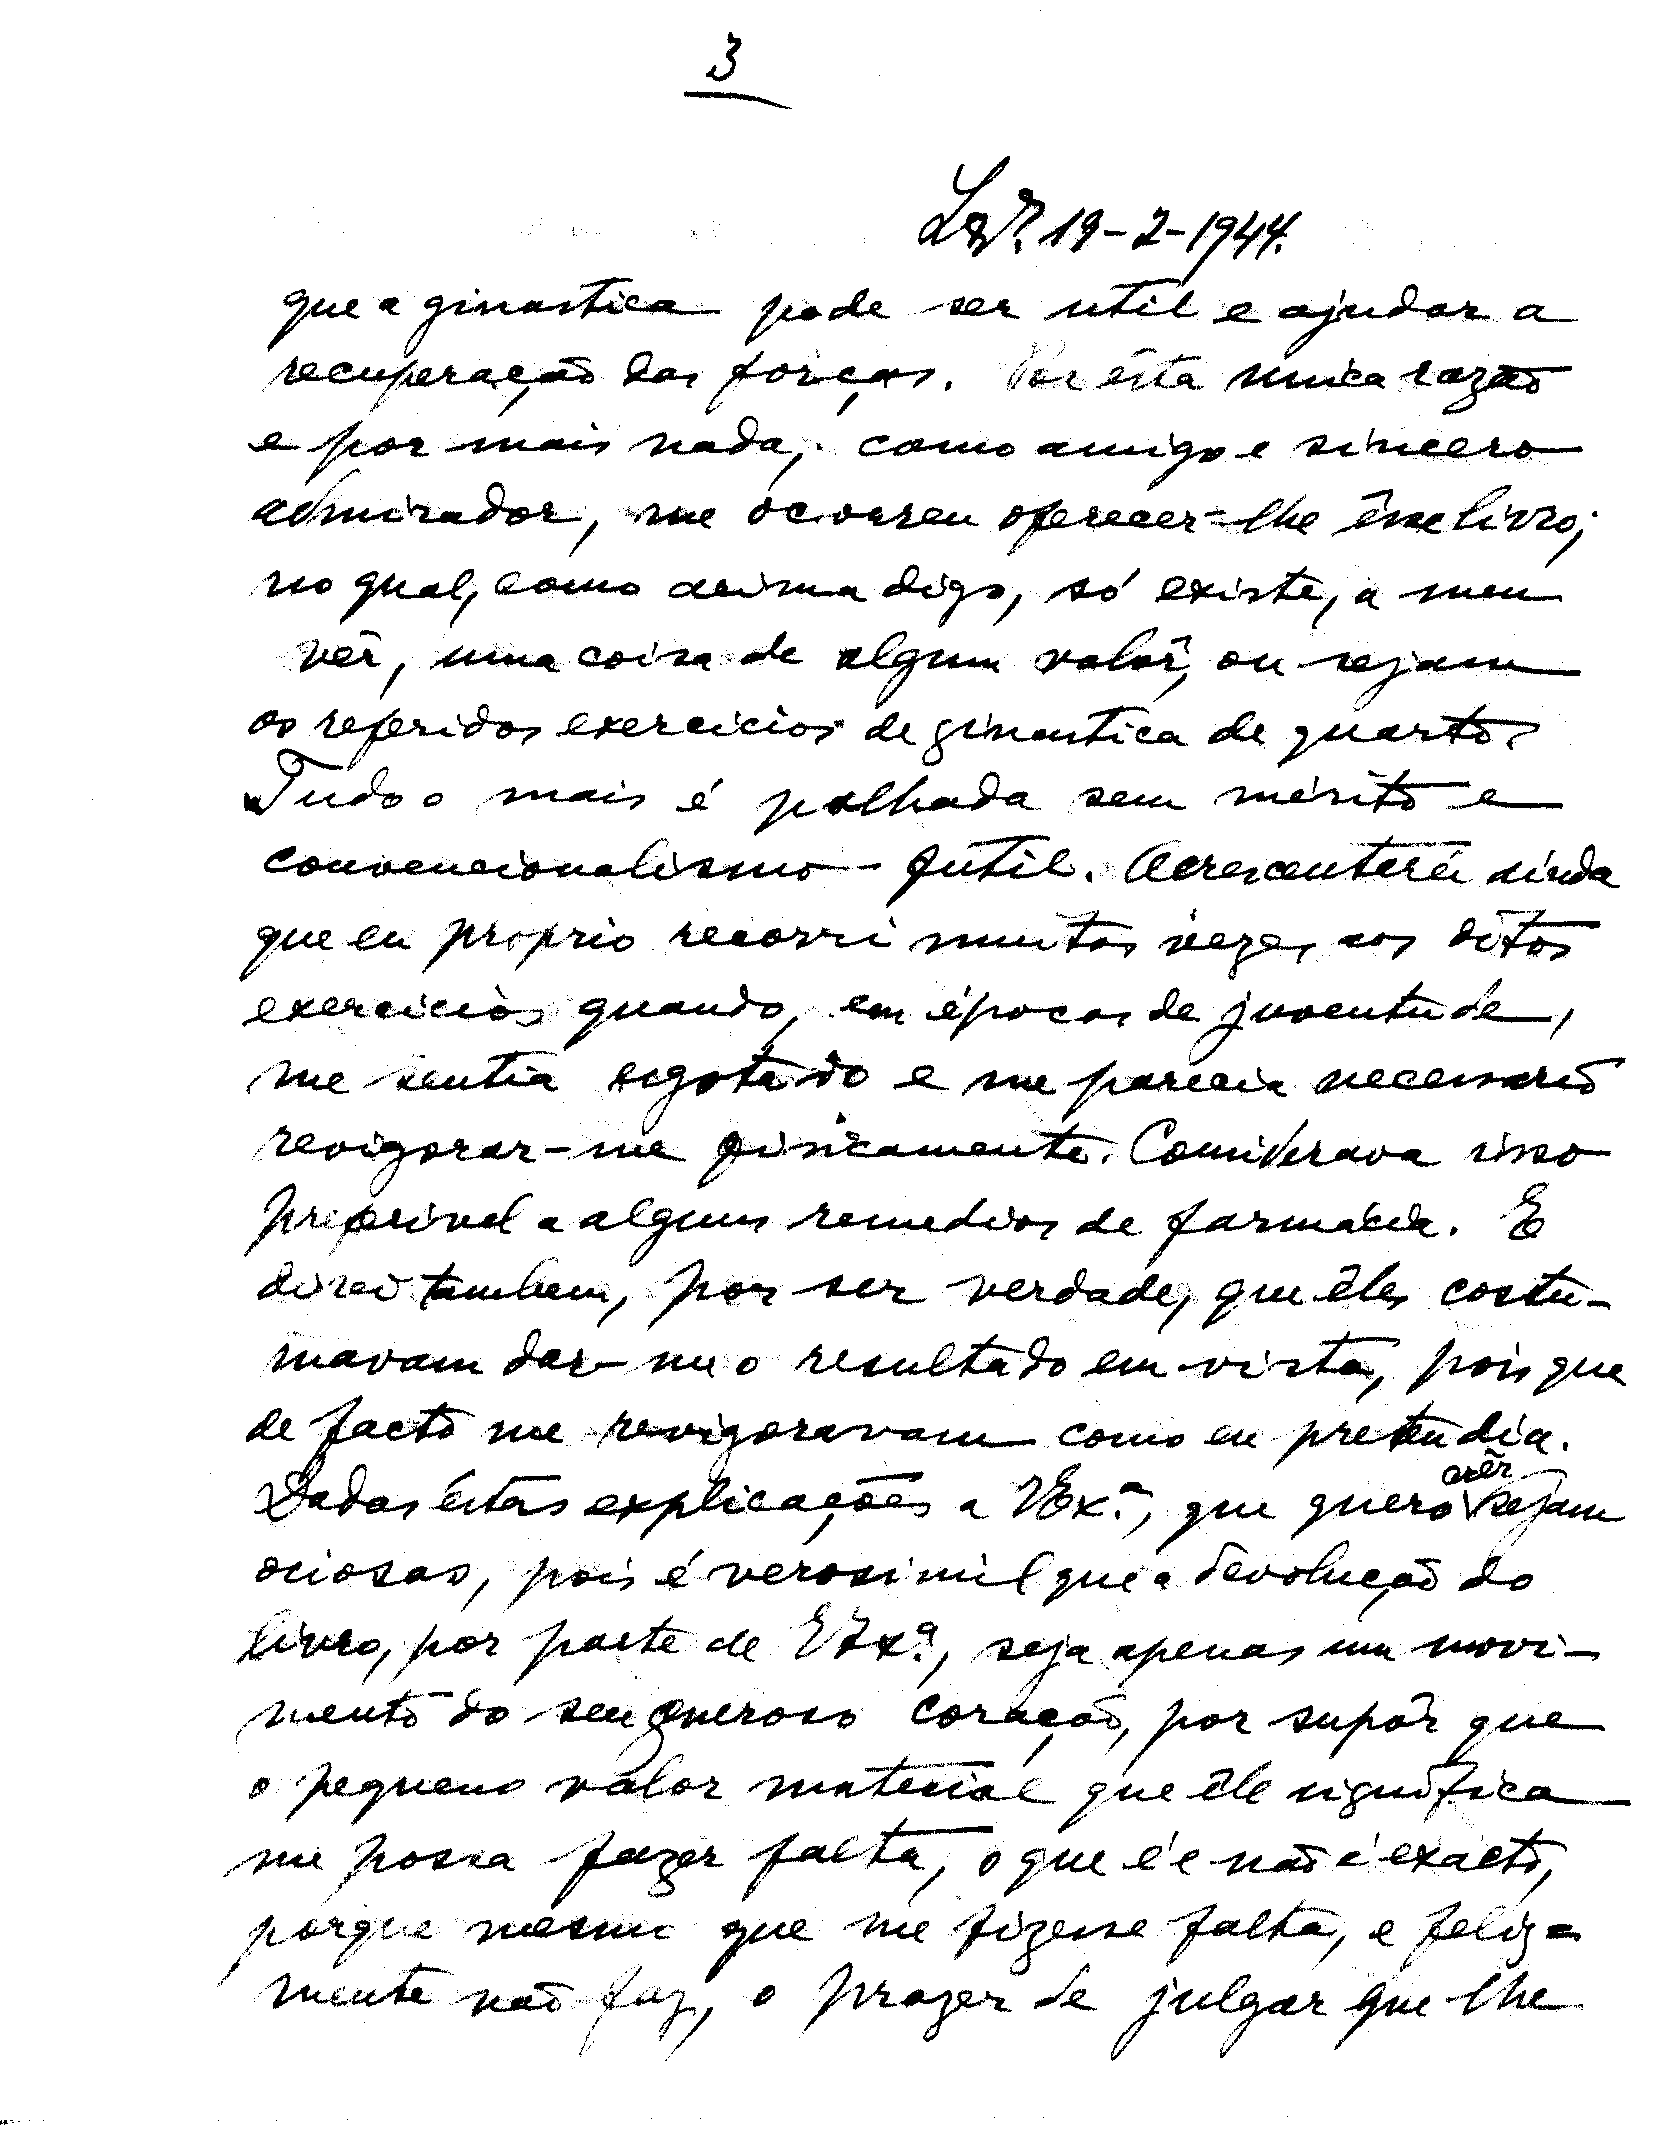 3
Lxª. 19-2-1944.
que a ginastica pode ser util e ajudar a
recuperação das forças. Por ésta unica razão
e por mais nada, como amigo e sincero
admirador, me ocorreu oferecer-lhe êsse livro;
no qual, como acima digo, só existe, a meu
vêr, uma coisa de algum valôr, ou sejam
os referidos exercicios de ginastica de quarto.
Tudo o mais é palhada sem mérito e
convencionalismo futil. Acrescentarei ainda
que eu proprio recorri muitas vezes aos ditos
exercicios quando, em épocas de juventude,
me sentia esgotado e me parecia necessario
revigorar-me fisicamente. Considerava isso
preferivel a alguns remedios de farmácia. E
direi tambem, por ser verdade, que êles costu-
mavam dar-me o resultado em vista, pois que
de facto me revigoravam como eu pretendia.
Dadas éstas explicações a VExª., que quero crêr sejam
ociosas, pois é verosimil que a devolução do
livro, por parte de VExª., seja apenas um movi-
mento do seu generoso coração, por supôr que
o pequeno valor material que êle significa
me possa fazer falta, o que é e não é exacto,
porque mesmo que me fizesse falta, e feliz-
mente não faz, o prazer de julgar que lhe